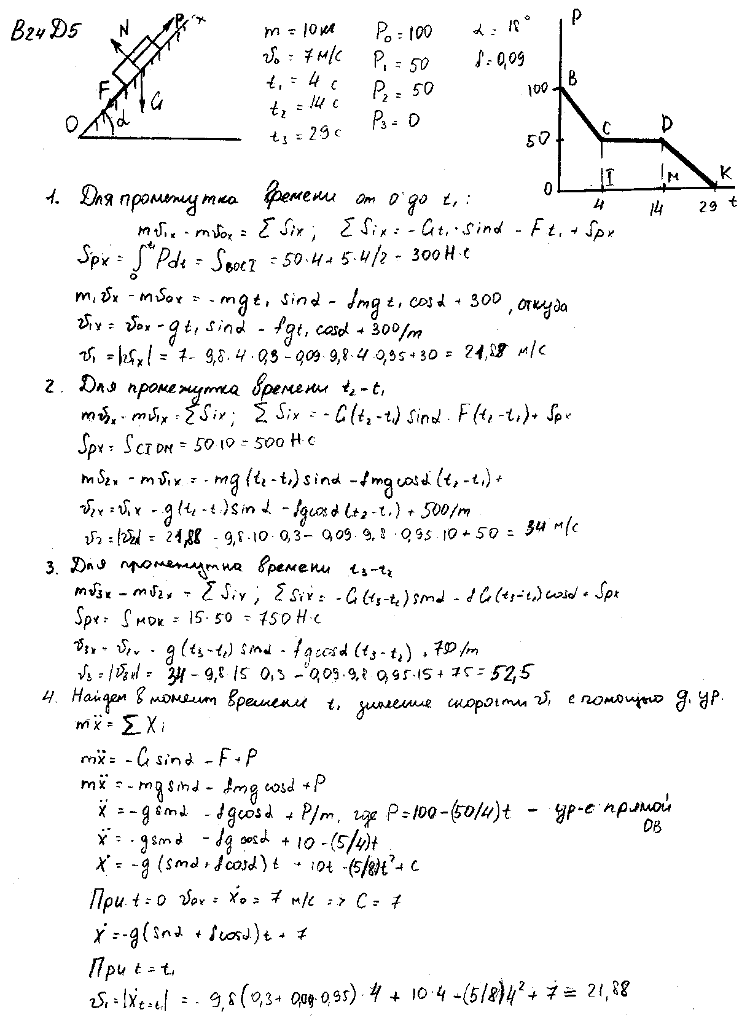 В24 Д5
N
P
x
F
G
O
α
m = 10 кг
v₀ = 7 м/с
t₁ = 4 с
t₂ = 14 с
t₃ = 29 с
P₀ = 100
P₁ = 50
P₂ = 50
P₃ = 0
α = 18°
f = 0,09
P
100 B
50 C D
0 I M K
4 14 29 t
1. Для промежутка времени от 0 до t₁:
mv₁ₓ - mv₀ₓ = ΣSix; ΣSix = -Gt₁·sinα - Ft₁ + Spx
Spx = ∫₀^t₁ Pdt = SBOCI = 50·4 + 5·4/2 - 300 Н·с
m₁vₓ - mv₀ₓ = -mgt₁ sinα - fmgt₁ cosα + 300, откуда
v₁ₓ = v₀ₓ - gt₁ sinα - fgt₁ cosα + 300/m
v₁ = |v₁ₓ| = 7 - 9,8·4·0,3 - 0,09·9,8·4·0,95 + 30 = 21,88 м/с
2. Для промежутка времени t₂-t₁
mv₂ₓ - mv₁ₓ = ΣSix; ΣSix = -G(t₂-t₁) sinα - F(t₂-t₁) + Spx
Spx = SCIDM = 50·10 = 500 Н·с
mv₂ₓ - mv₁ₓ = -mg(t₂-t₁) sinα - fmg cosα (t₂-t₁) +
v₂ₓ = v₁ₓ - g(t₂-t₁) sinα - fg cosα (t₂-t₁) + 500/m
v₂ = |v₂ₓ| = 21,88 - 9,8·10·0,3 - 0,09·9,8·0,95·10 + 50 = 34 м/с
3. Для промежутка времени t₃-t₂
mv₃ₓ - mv₂ₓ = ΣSix; ΣSix = -G(t₃-t₂) sinα - fG(t₃-t₂) cosα + Spx
Spx = SMDK = 15·50 = 750 Н·с
g(t₃-t₂) sinα - fg cosα (t₃-t₂) + /m
v₃ = |v₃ₓ| = 34 - 9,8 15 0,3 - 0,09·9,8 0,95·15 + 75 = 52,5
4. Найдем в момент времени t₁ значение скорости v₁ с помощью д. ур.
mẍ = ΣXi
mẍ = -G sinα - F + P
mẍ = -mg sinα - fmg cosα + P
ẍ = -g sinα - fg cosα + P/m, где P = 100 - (50/4)t - ур-е прямой
ẍ = -g sinα - fg cosα + 10 - (5/4)t
ẋ = -g (sinα + f cosα) t + 10t - (5/8)t² + C
При t = 0 v₀ₓ = ẋ₀ = 7 м/с => C = 7
ẋ = -g (sinα + f cosα) t + 7
При t = t₁
v₁ = |ẋt=t₁| = - 9,8 (0,3 + 0,09·0,95)·4 + 10·4 - (5/8)4² + 7 = 21,88